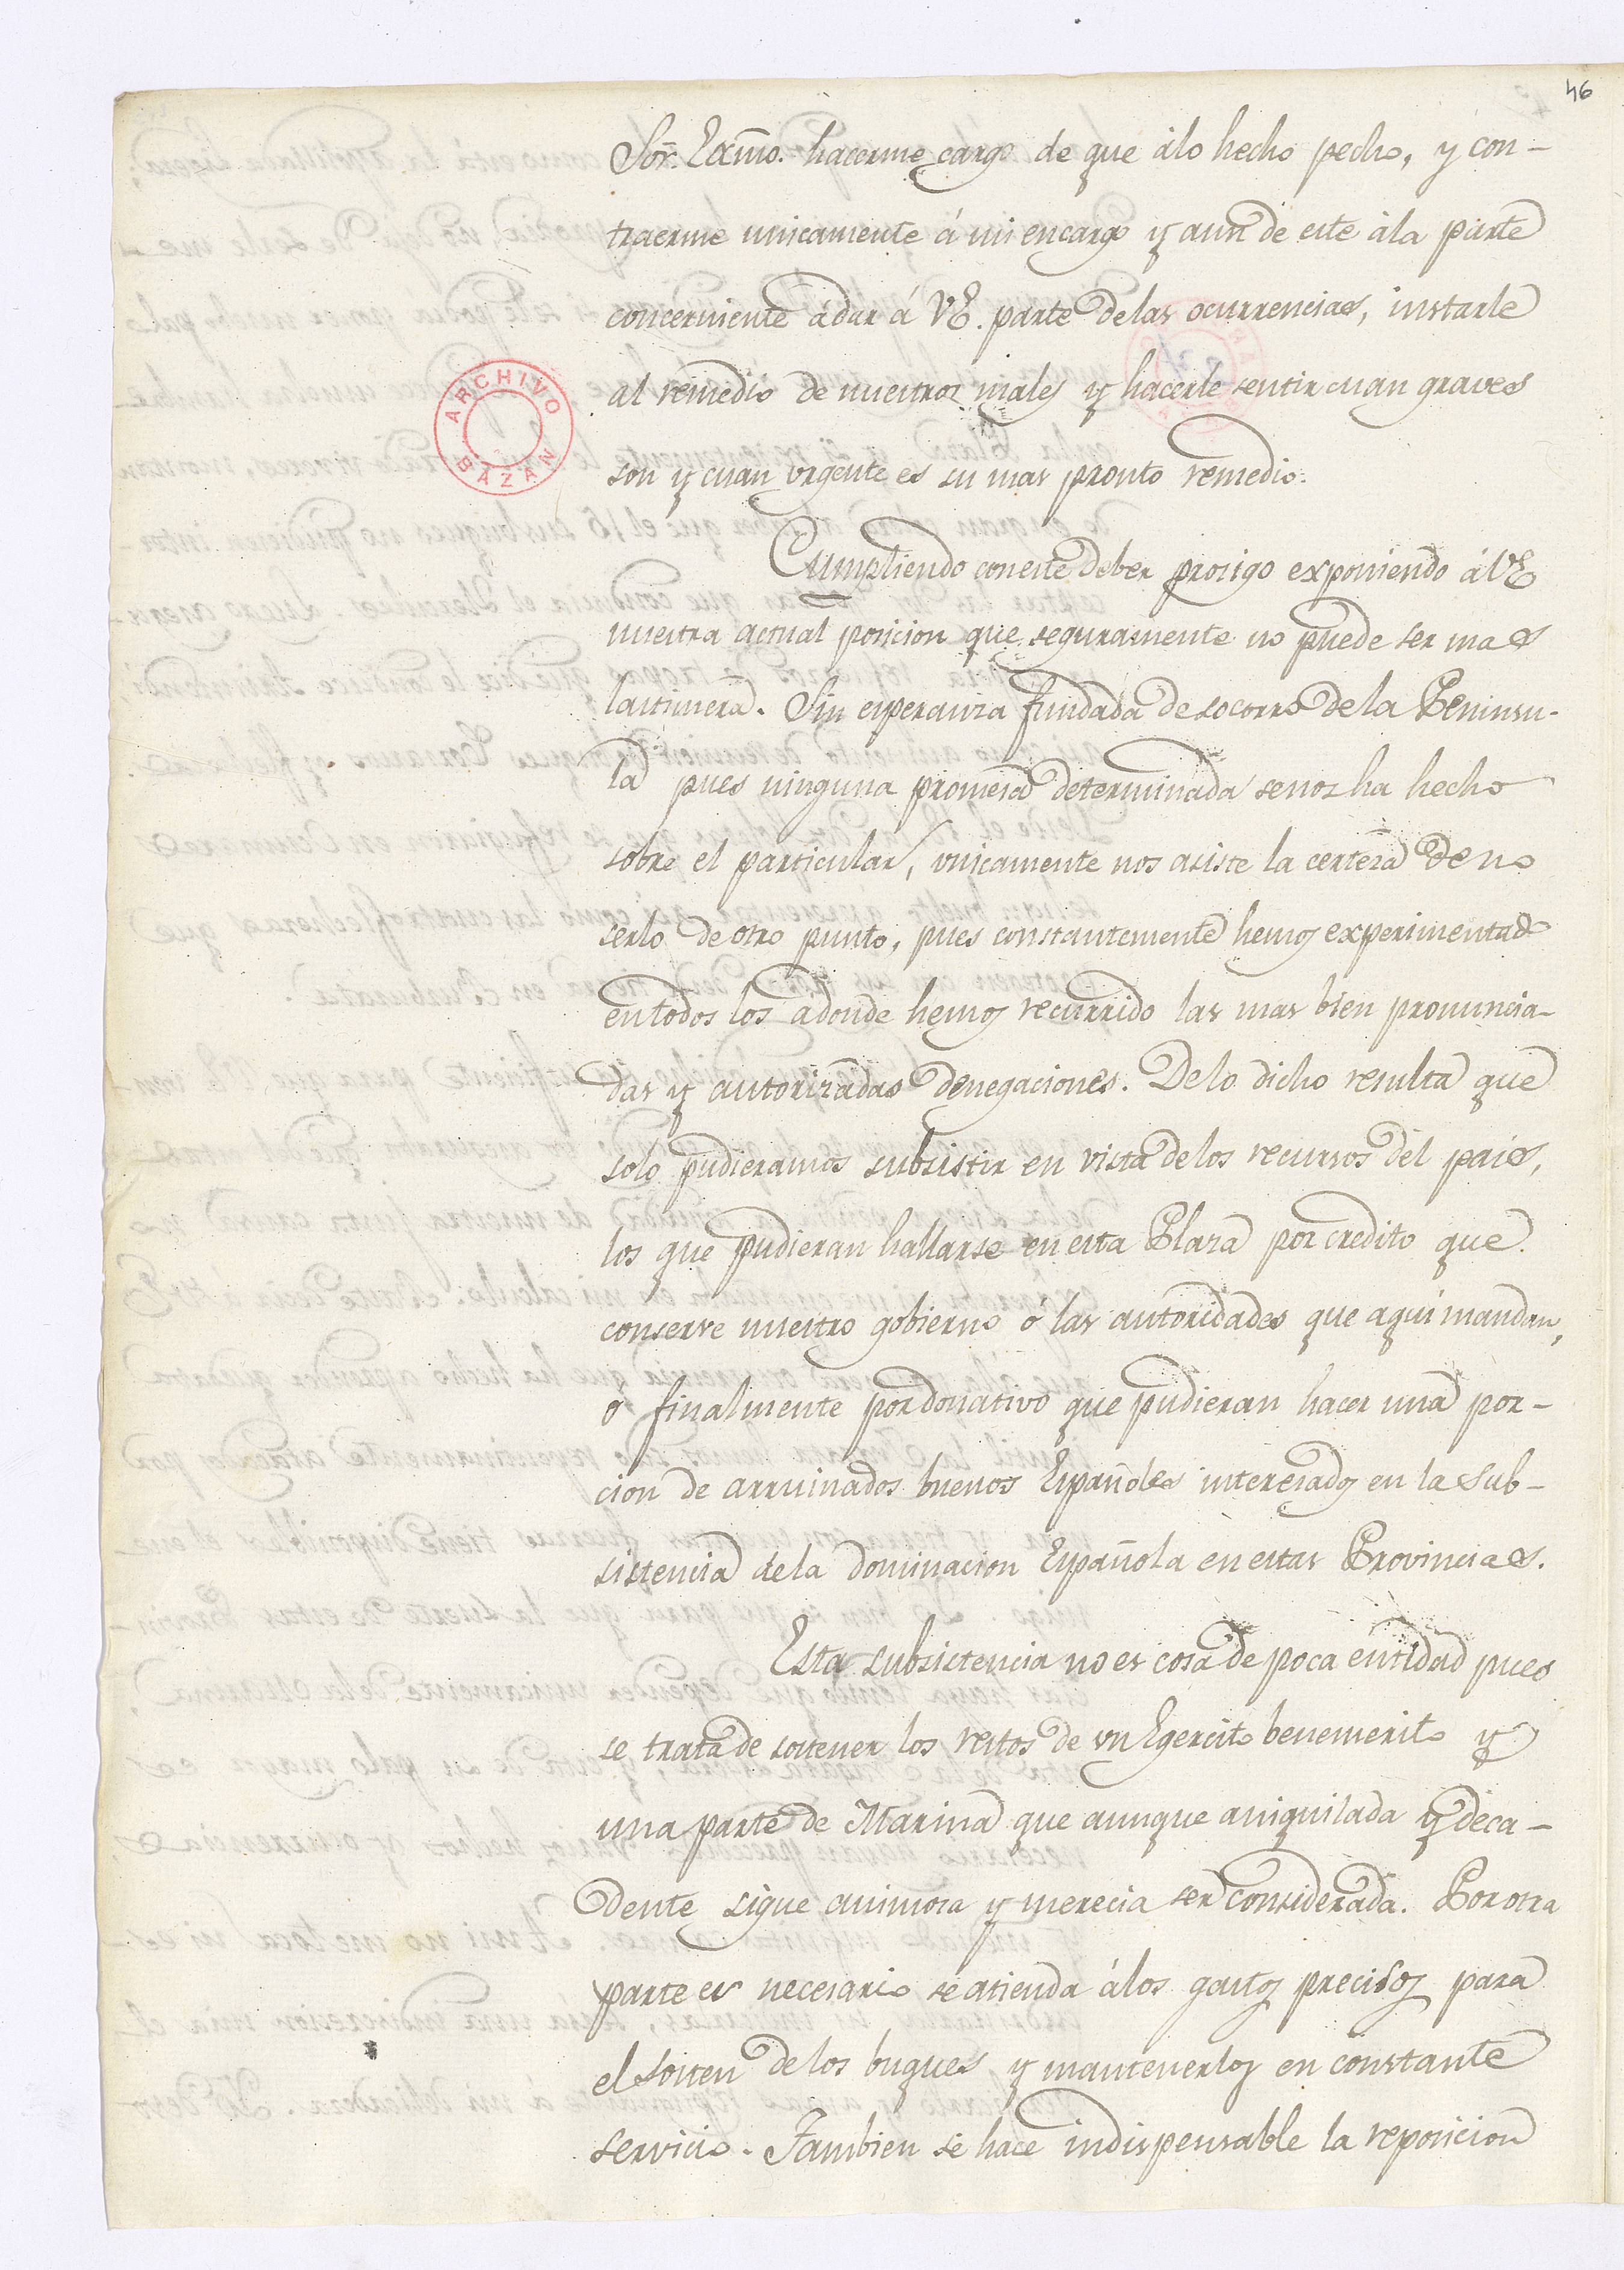 46
Sor. Exmo. hacerme cargo de que álo hecho pecho, y con-
traerme unicamente á mi encargo y aun de este ála parte
concerniente ádar á VE. parte delas ocurrencias, instarle
al remedio de nuestros males y hacerle sentir cuan graves
son y cuan urgente es su mas pronto remedio.
ARCHIVO BAZAN
Cumpliendo coneste deber prosigo exponiendo áVE
nuestra actual posicion que seguramente no puede ser mas
lastimera. Sin esperanza fundada de socorro de la Peninsu-
la pues ninguna promesa determinada senos ha hecho
sobre el particular, unicamente nos asiste la certeza de no
serlo de otro punto, pues constantemente hemos experimentado
entodos los ádonde hemos recurrido las mas bien pronuncia-
das y autorizadas denegaciones. Delo dicho resulta que
solo pudieramos subsistir en vista delos recursos del pais,
los que pudieran hallarse en esta Plaza por credito que
conserve nuestro gobierno ó las autoridades que aqui mandan,
o finalmente por donativo que pudieran hacer una por-
cion de arruinados buenos Españoles interesados en la sub-
sistencia dela dominacion Española en estas Provincias.
Esta subsistencia no es cosa de poca entidad pues
se trata de sostener los restos de un Egercito benemerito y
una parte de Marina que aunque aniquilada y deca-
dente sigue animosa y merecia ser considerada. Por otra
parte es necesario se atienda álos gastos precisos para
el sosten delos buques y mantenerlos en constante
servicio. Tambien se hace indispensable la reposicion